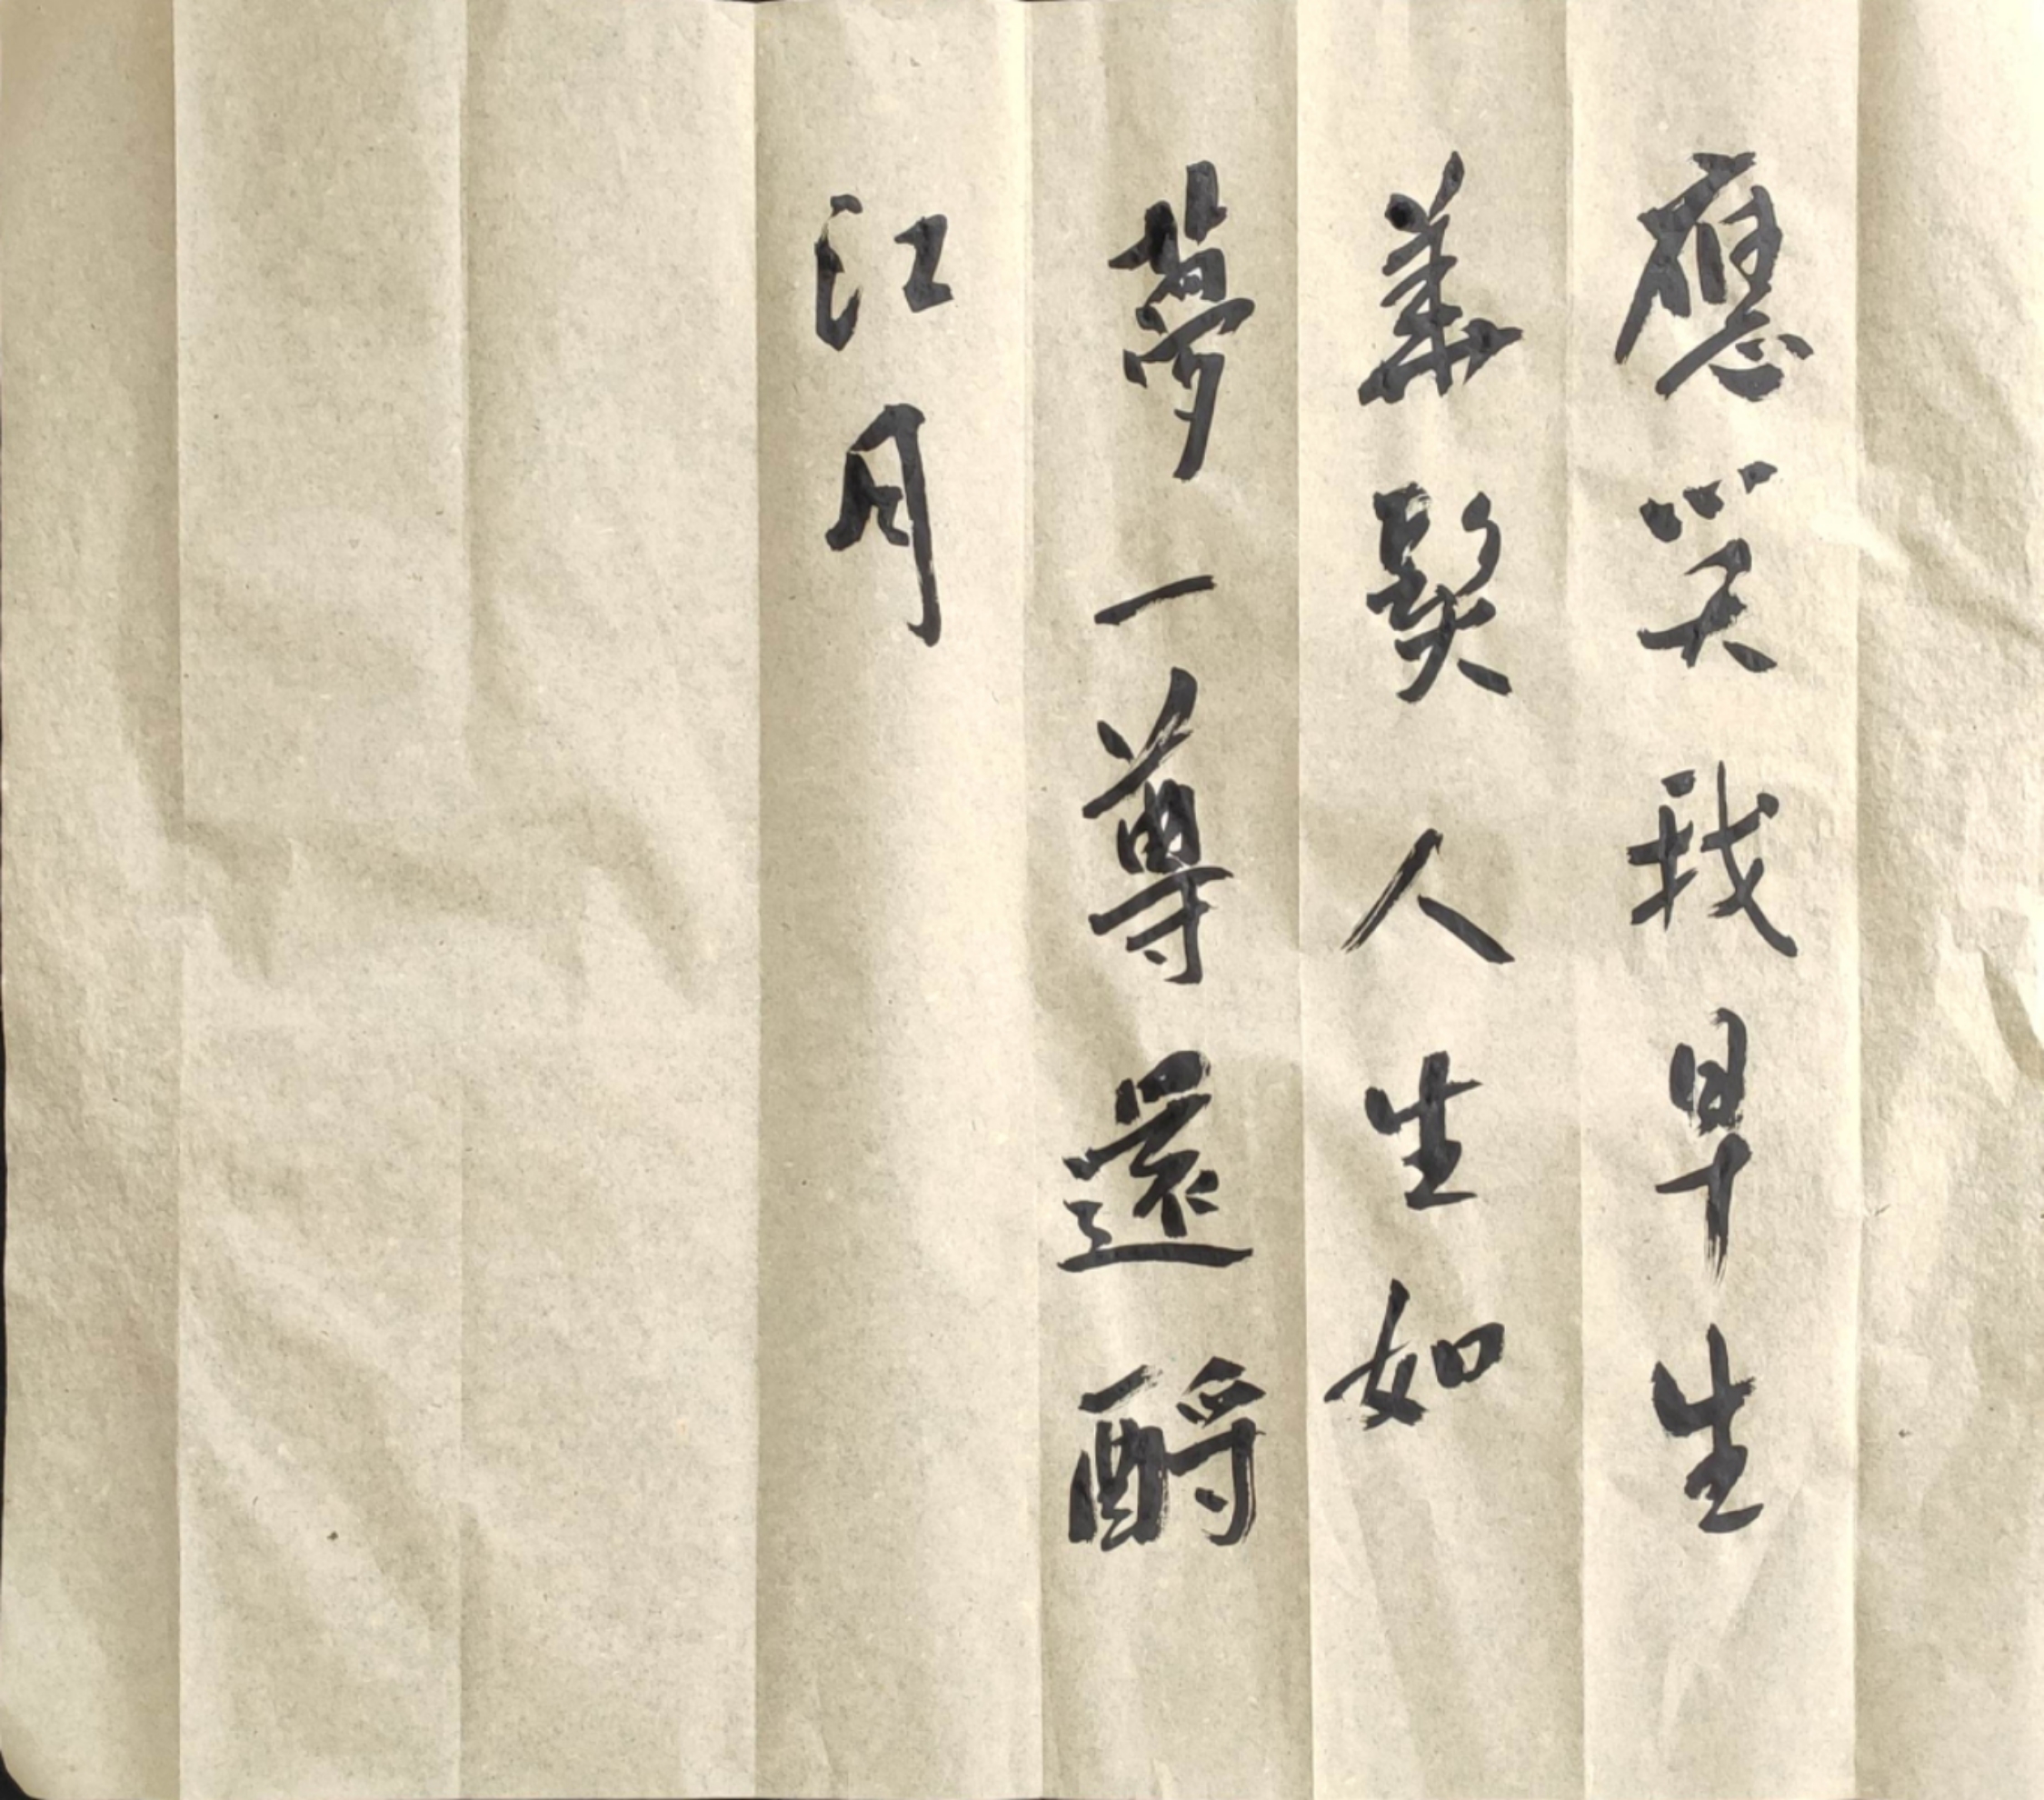 應笑我早生
華髮人生如
夢一尊還酹
江月